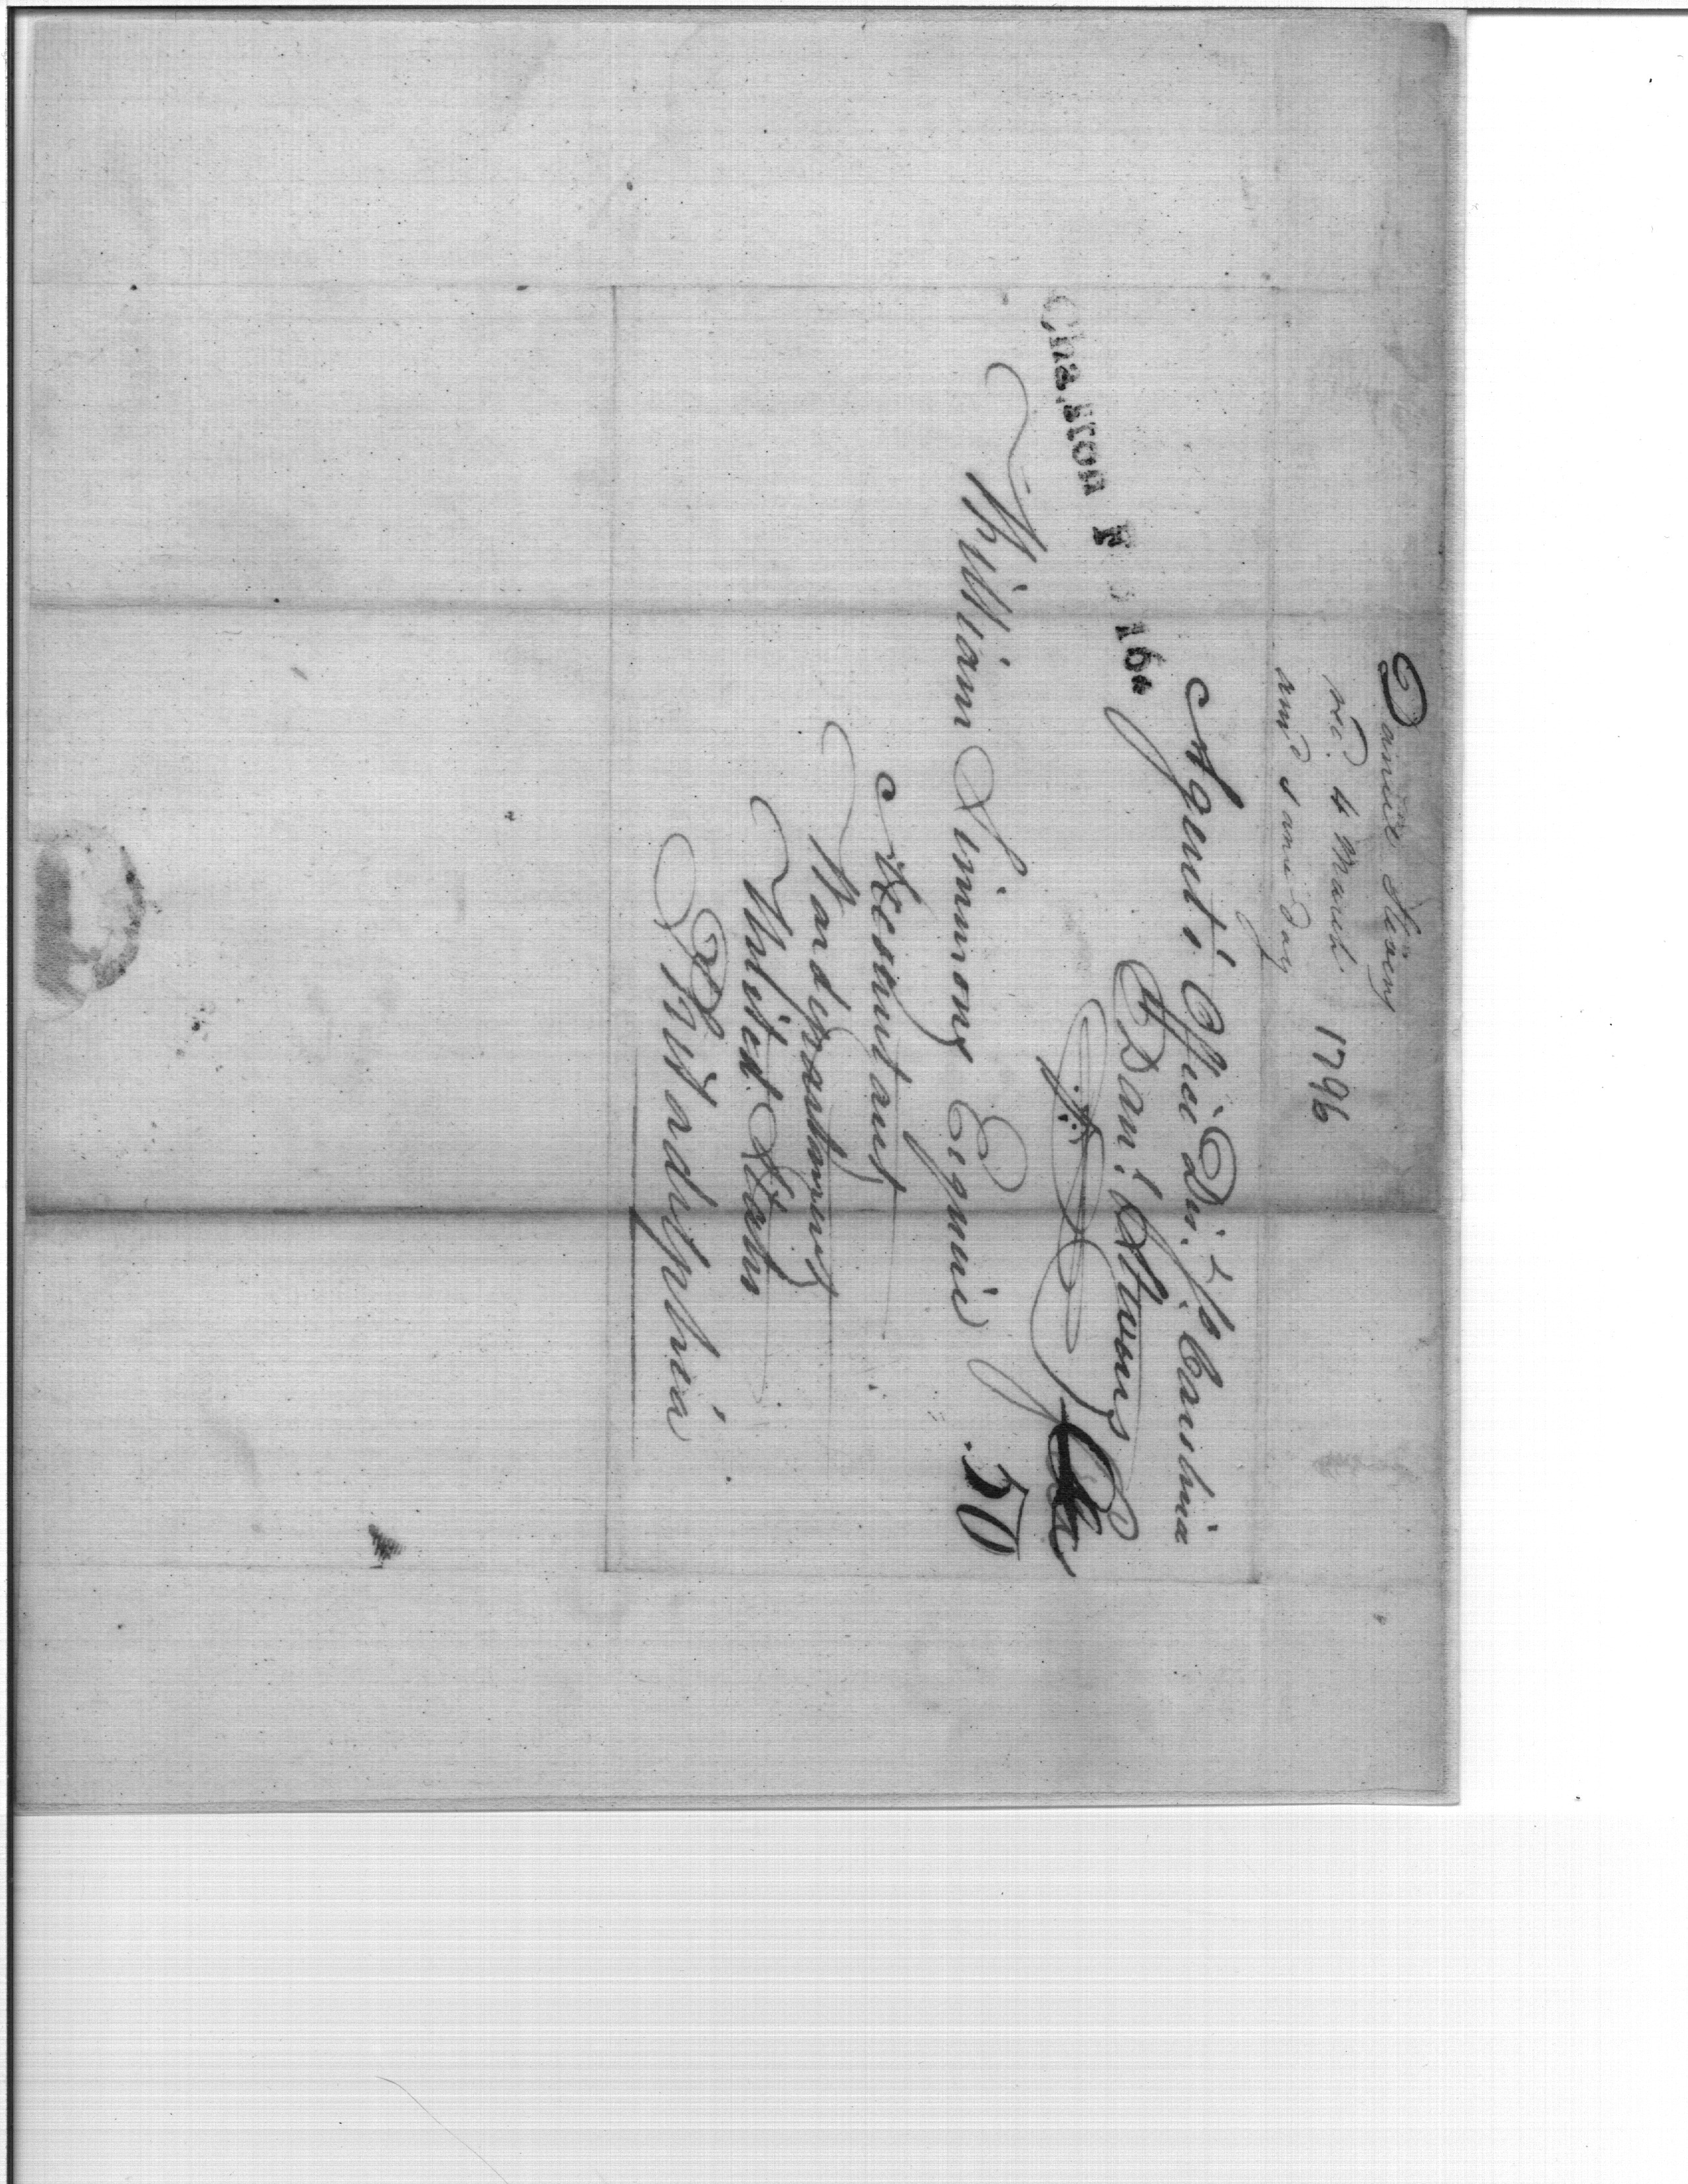 Daniel Stevens
rec.d 4 March 1796
and same day
Agent's Office Dis.t So. Carolina
Dan.l Stevens
Cha.ston F 16.
William Simmons Esquire
50
Accountant
War department
United States
Philadelphia